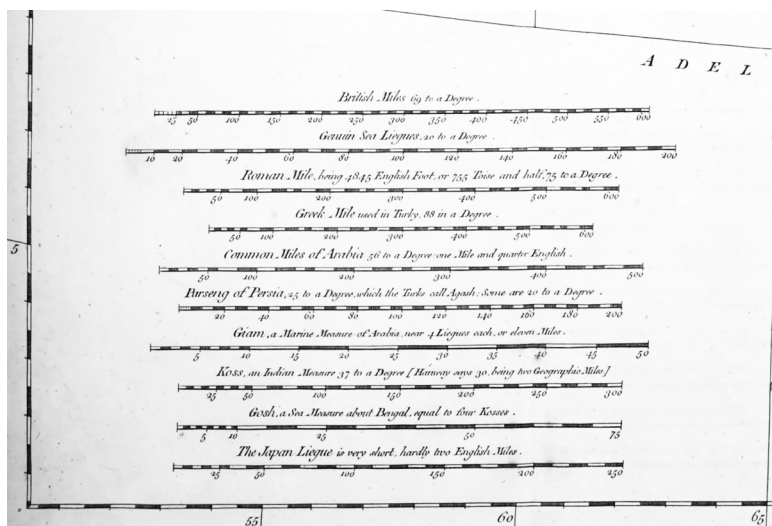 A D E L
British Miles 69 to a Degree.
25 50 100 150 200 250 300 350 400 450 500 550 600
Genuin Sea Liegues, 20 to a Degree.
10 20 40 60 80 100 120 140 160 180 200
Roman Mile, being 4845 English Foot, or 755 Toise and half, 75 to a Degree.
50 100 200 300 400 500 600
Greek Mile used in Turky, 88 in a Degree.
50 100 200 300 400 500 600
5
Common Miles of Arabia 56 to a Degree: one Mile and quarter English.
50 100 200 300 400 500
Parseng of Persia, 25 to a Degree, which the Turks call Agash: Some are 20 to a Degree.
20 40 60 80 100 120 140 160 180 200
Giam, a Marine Measure of Arabia, near 4 Liegues each, or eleven Miles.
5 10 15 20 25 30 35 40 45 50
Koss, an Indian Measure 37 to a Degree [Hanway says 30, being two Geographic Miles]
25 50 100 150 200 250 300
Gosh, a Sea Measure about Bengal, equal to four Kosses.
5 10 25 50 75
The Japan Liegue is very short, hardly two English Miles.
25 50 100 150 200 250
55 60 65